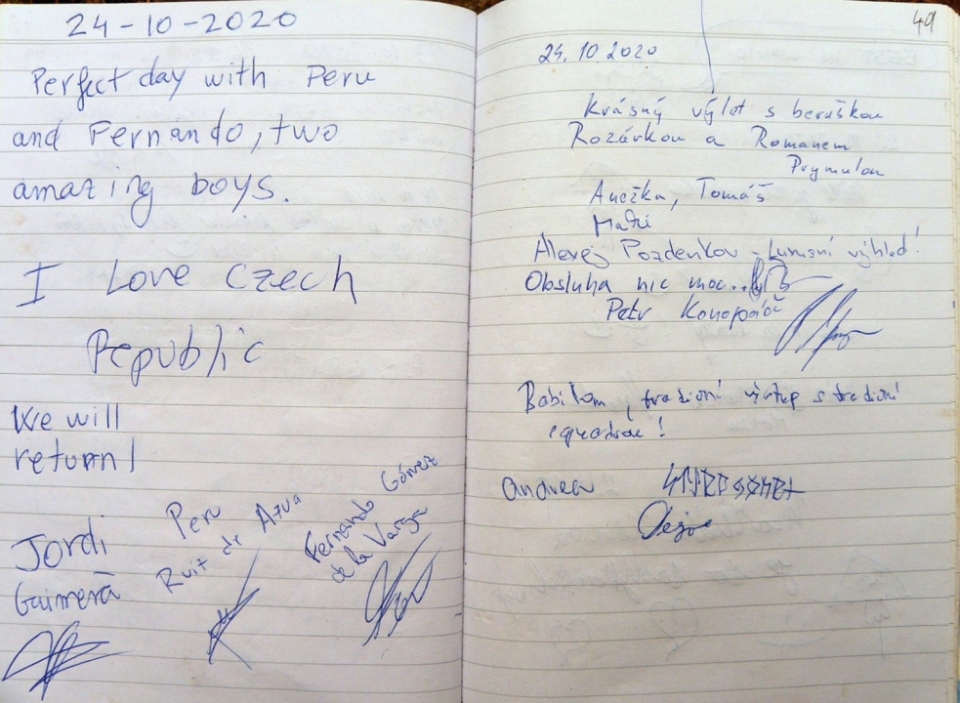 24-10-2020
Perfect day with Peru
and Fernando, two
amazing boys.
I Love Czech
Republic
We will
return!
Jordi
Guimerã
Peru
Ruiz de Azua
Fernando Gómez
de la Varga
49
24.10.2020
Krásný výlet s beruškou
Rozárkou a Romanem
Prymulou
Anežka, Tomáš
Alexej Pozdenkov - Luxusní výhled!
Obsluha nic moc..
Petr Konopáč
tradiční výstup s tradiční
Andrea